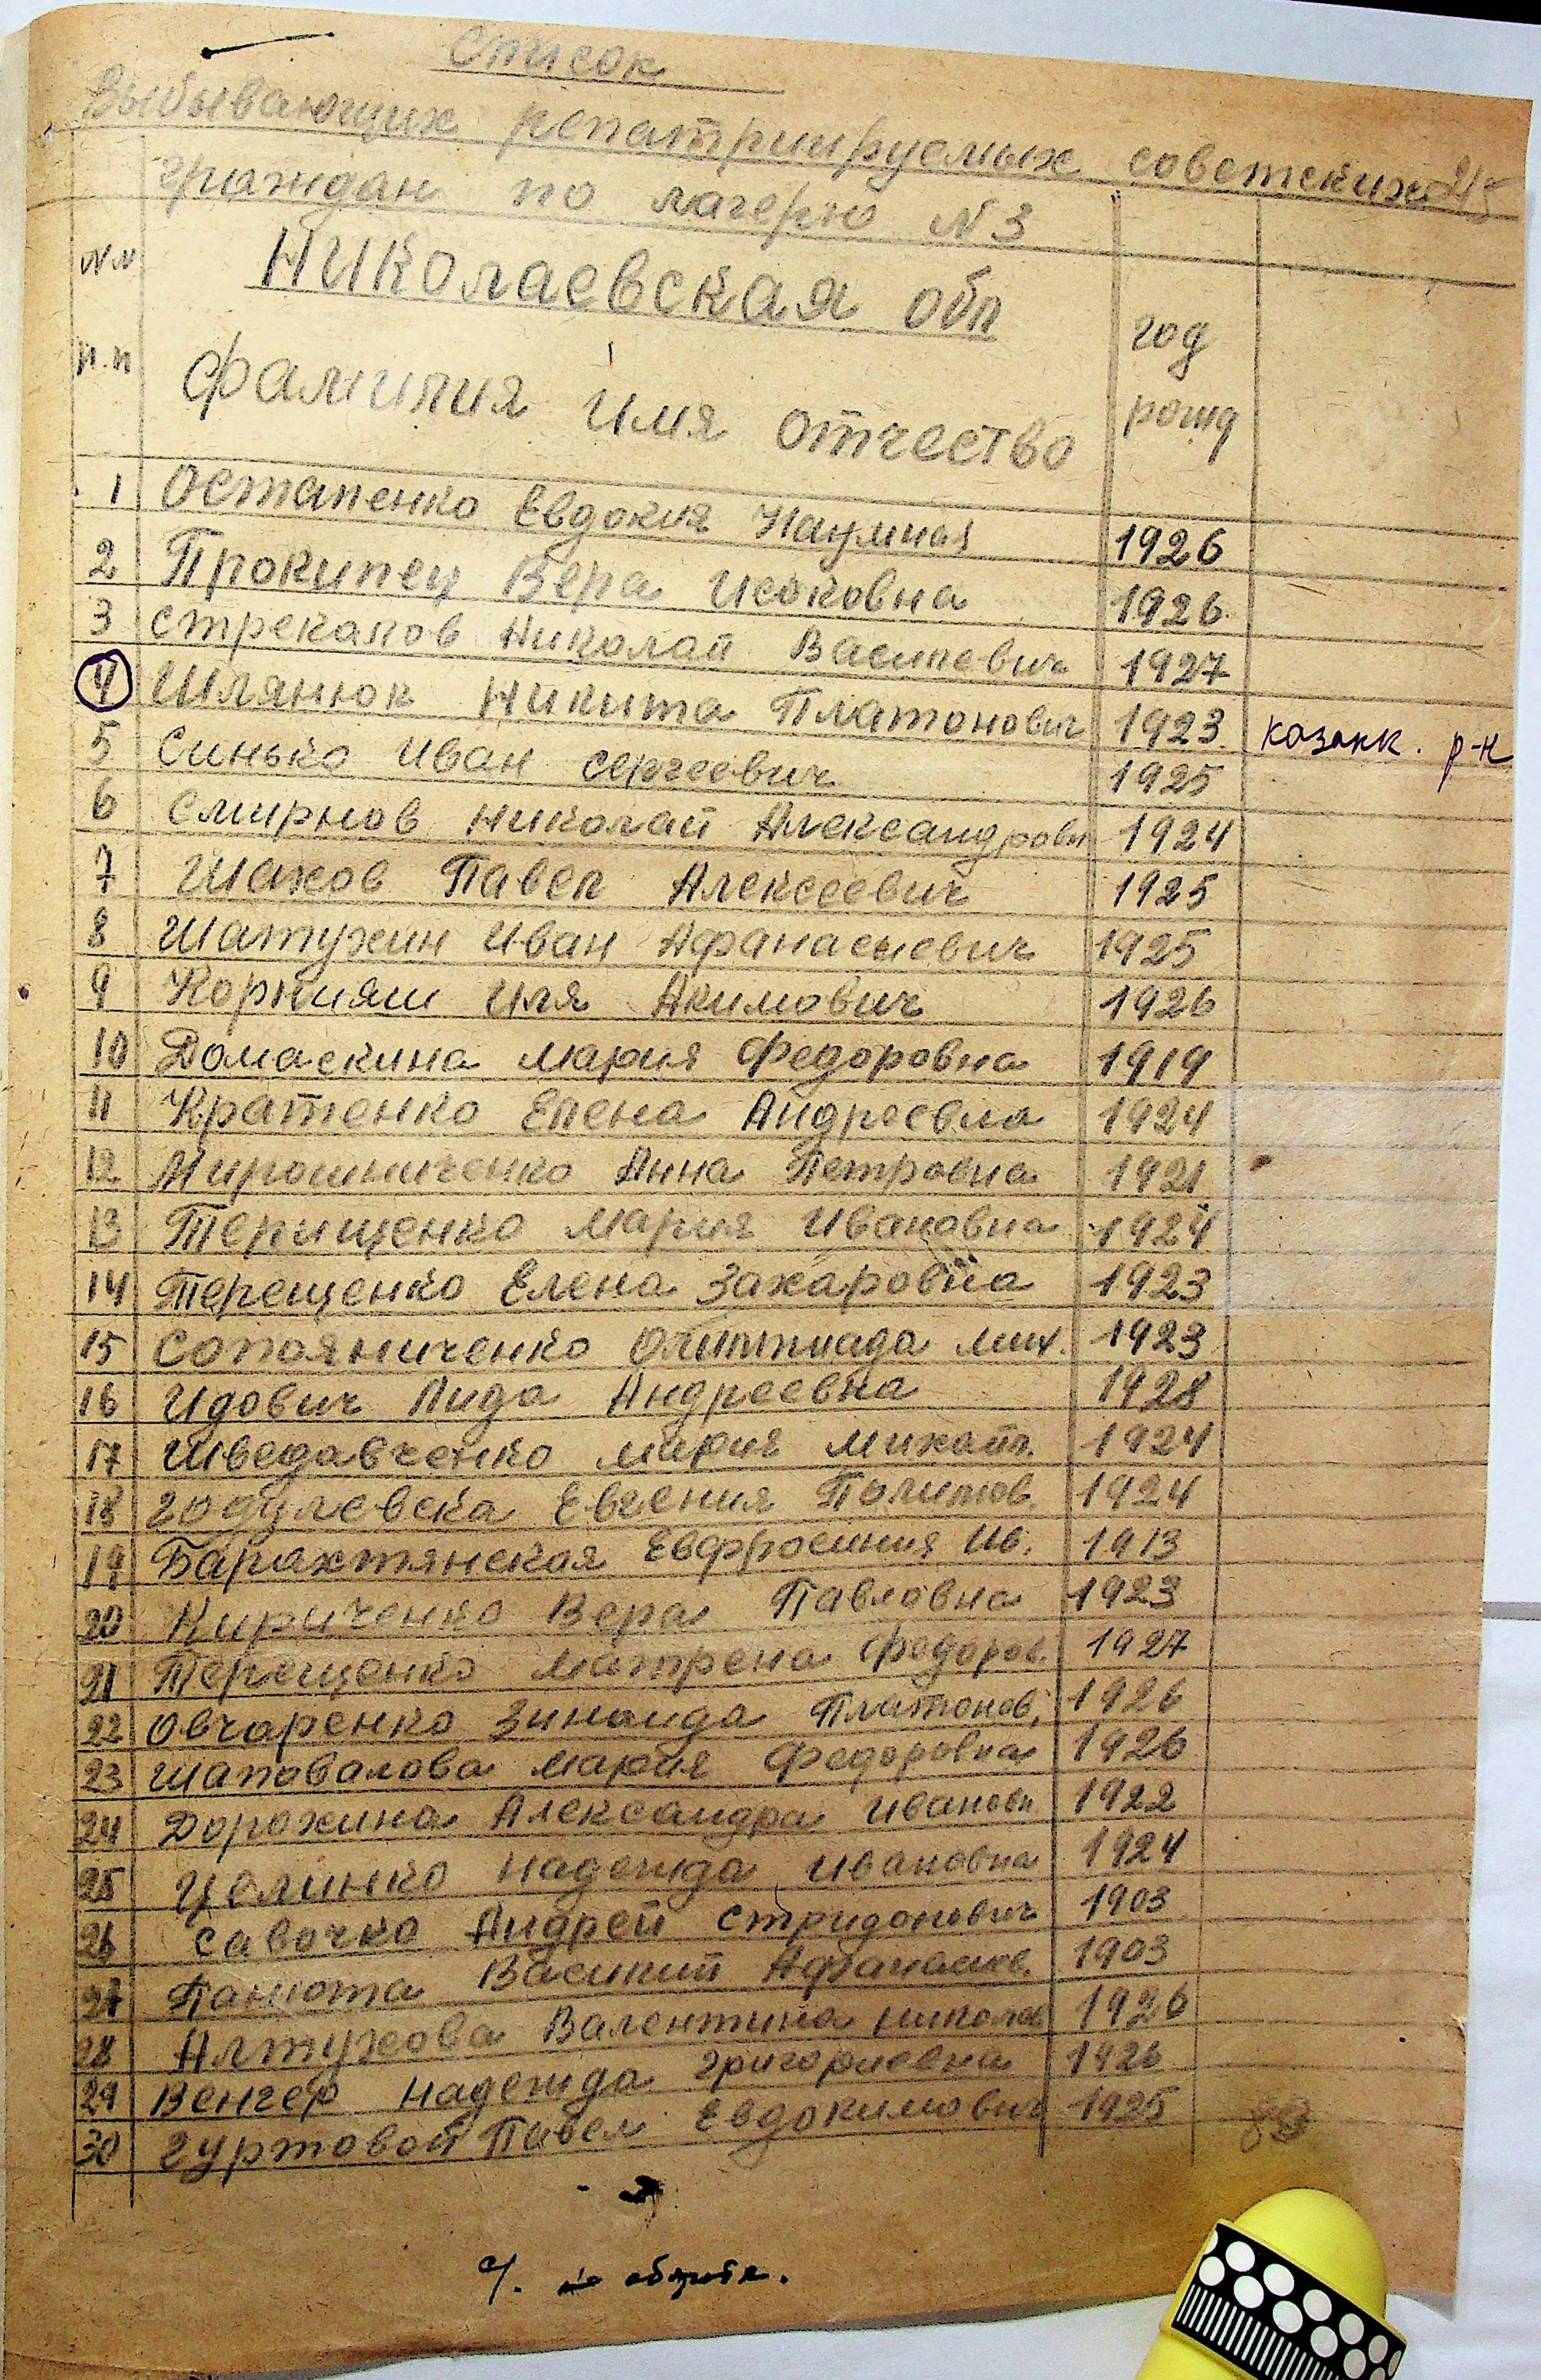 Список
Выбывающих репатриируемых советских
граждан по лагерю N 3
Николаевская обл
NN п.п Фамилия Имя отчество год рожд
1 Остапенко Евдокия Наумная 1926
2 Прокипец Вера Исаковна 1926
3 Стрекалов Николай Василевич 1927
4 Шлянюк Никита Платонович 1923 казанк. р-н
5 Синько Иван Сергеевич 1925
6 Смирнов Николай Александрович 1924
7 Шахов Павел Алексеевич 1925
8 Шатухин Иван Афанасиевич 1925
9 Корнияш Иля Акимович 1926
10 Домаскина Мария Федоровна 1919
11 Кратенко Елена Андреевна 1924
12 Мирошниченко Анна Петровна 1921
13 Терищенко Мария Ивановна 1924
14 Терещенко Елена Захаровна 1923
15 Сопояниченко Олимпиада мих. 1923
16 Идович Лида Андреевна 1928
17 Шведавченко Мария Михайл. 1924
18 Годулевска Евгения Политов. 1924
19 Барахтянская Евфросиния Ив. 1913
20 Кириченко Вера Павловна 1923
21 Терещенко Матрена Федоров. 1927
22 Овчаренко Зинаида Платонов. 1926
23 Шаповалова Мария Федоровна 1926
24 Дорохина Александра Ивановн 1922
25 Целинко Надежда Ивановна 1924
26 Савочка Андрей Стридонович 1903
27 Панюта Василий Афанасиев. 1903
28 Алтухова Валентина николов 1926
29 Венгер Надежда Григориевна 1926
30 Гуртовой Павел Евдокимович 1925